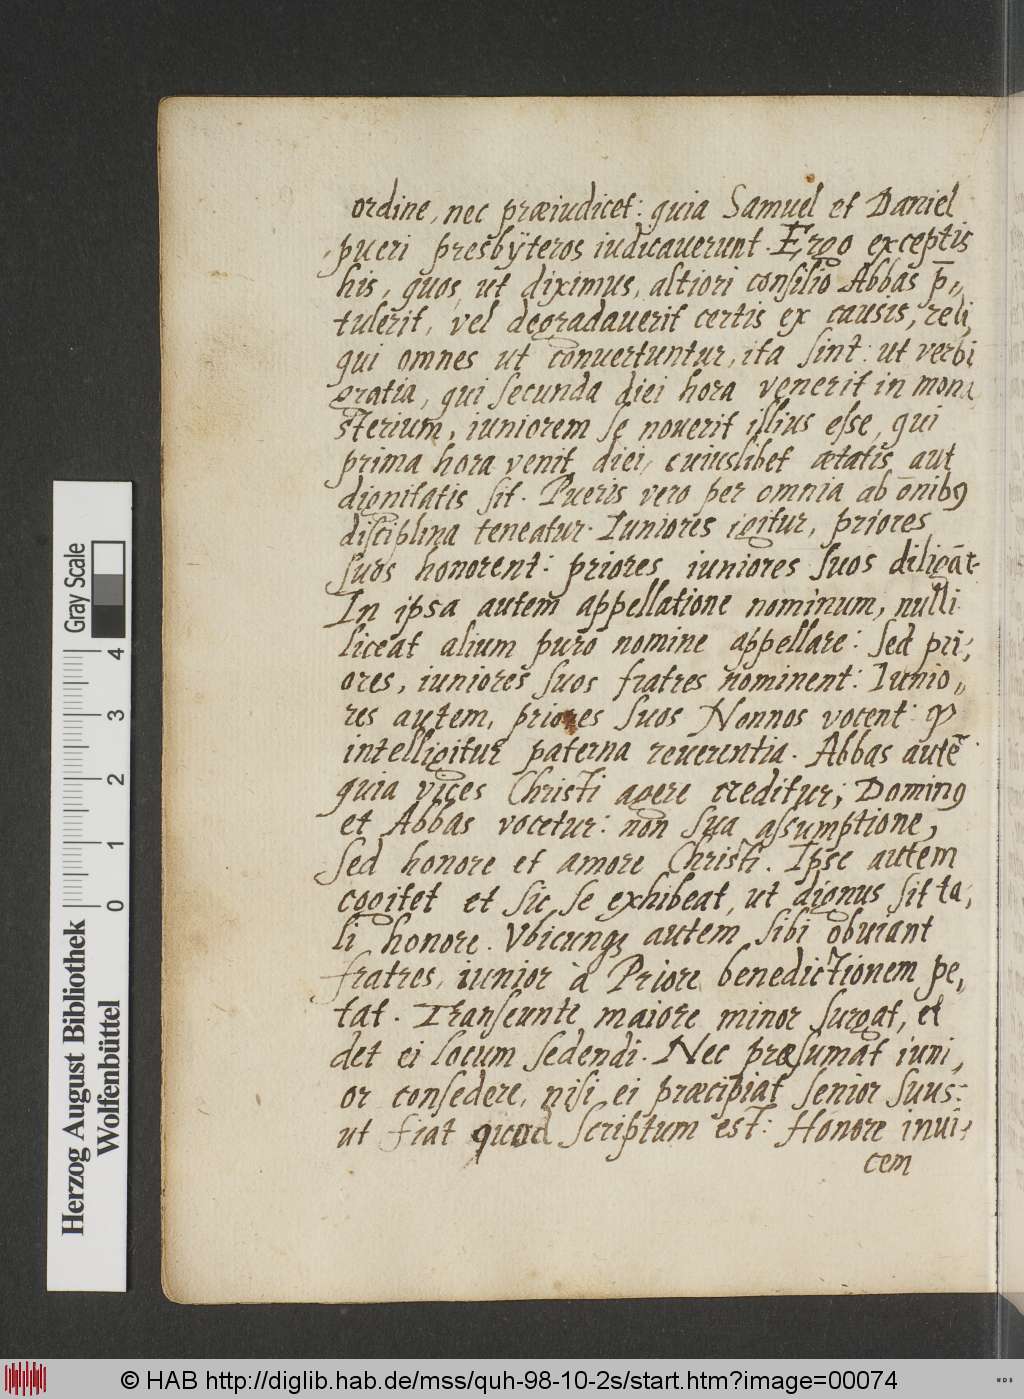 ordine, nec præiudicet: quia Samuel et Daniel
pueri presbÿteros iudicauerunt. Ergo exceptis
his, quos, ut diximus, altiori consilio Abbas p̄„
tulerit, vel degradauerit certis ex causis, reli,
qui omnes ut conuertuntur, ita sint: ut verbi
gratia, qui secunda diei hora venerit in mona
sterium, iuniorem se nouerit illius esse, qui
prima hora venit diei, cuiuslibet ætatis aut
dignitatis sit. Pueris vero per omnia ab ōnibꝰ
disciplina teneatur. Iuniores igitur, priores
suos honorent: priores iuniores suos diligāt.
In ipsa autem appellatione nominum, nulli
liceat alium puro nomine appellare: sed pri,
ores, iuniores suos fratres nominent: Iunio„
res autem, priores suos Nonnos vocent: qꝫ
intelligitur paterna reuerentia. Abbas autē
quia vices Christi agere creditur; Dominꝰ
et Abbas vocetur: non sua assumptione,
sed honore et amore Christi. Ipse autem
cogitet et sic se exhibeat, ut dignus sit ta,
li honore. Vbicunqꝫ autem sibi obuiant
fratres, iunior à Priore benedictionem pe,
tat. Transeunte maiore minor surgat, et
det ei locum sedendi. Nec præsumat iuni,
or consedere, nisi ei præcipiat senior suus:
ut fiat quod scriptum est: Honore inui,
cem
Gray Scale
0 1 2 3 4
Herzog August Bibliothek
Wolfenbüttel
© HAB http://diglib.hab.de/mss/quh-98-10-2s/start.htm?image=00074